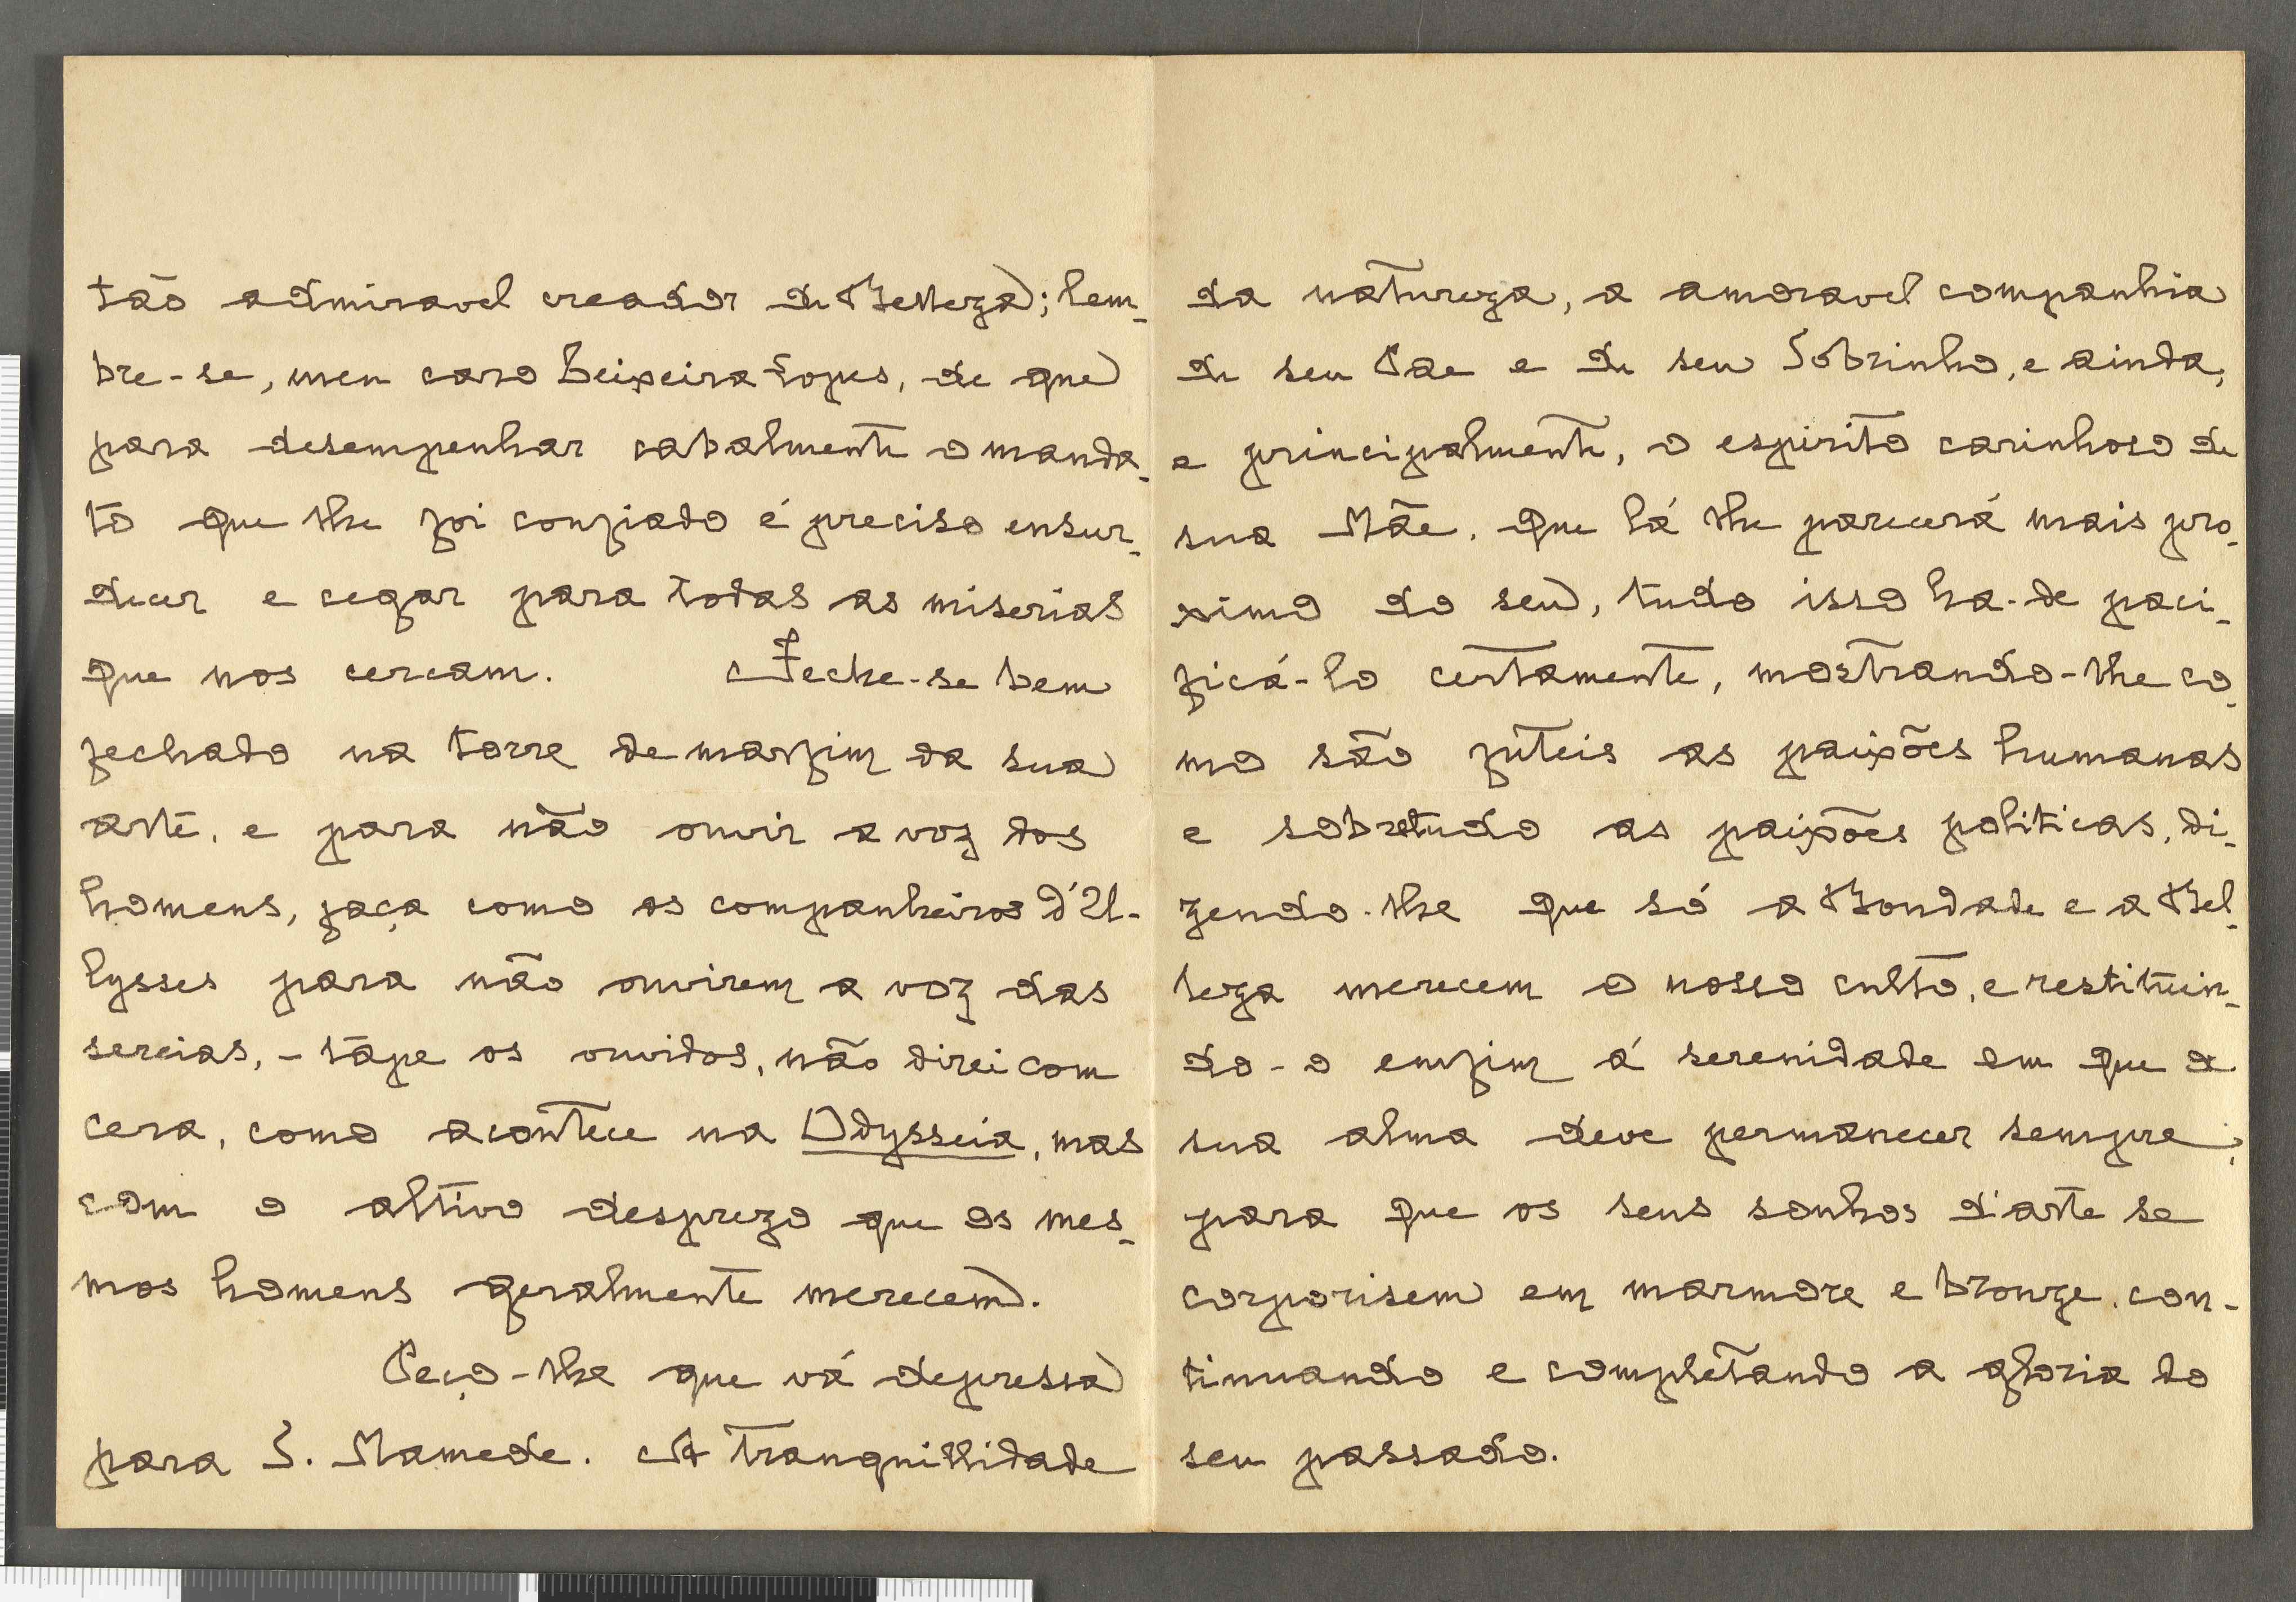 tão admiravel creador de Belleza; lem-
bre-se, meu caro Teixeira Lopes, de que
para desempenhar cabalmente o manda-
to que lhe foi confiado é preciso ensur-
decer e cegar para todas as miserias
que nos cercam. Feche-se bem
fechado na torre de marfim da sua
arte, e para não ouvir a voz dos
homens, faça como os companheiros d'Ul-
lysses para não ouvirem a voz das
sereias, - tape os ouvidos, não direi com
cera, como acontece na Odysseia, mas
com o altivo desprezo que os mes-
mos homens geralmente merecem.
Peço-lhe que vá depressa
para S. Mamede. A tranquillidade
da natureza, a amoravel companhia
de seu Pae e de seu Sobrinho, e ainda,
e principalmente, o espirito carinhoso de
sua Mãe, que lá lhe parecerá mais pro-
ximo do seu, tudo isso ha-de paci-
ficá-lo certamente, mostrando-lhe co-
mo são futeis as paixões humanas
e sobretudo as paixões politicas, di-
zendo-lhe que só a Bondade e a Bel-
leza merecem o nosso culto, e restituin-
do-o emfim á serenidade em que a
sua alma deve permanecer sempre,
para que os seus sonhos d'arte se
corporisem em marmore e bronze, con-
tinuando e completando a gloria do
seu passado.